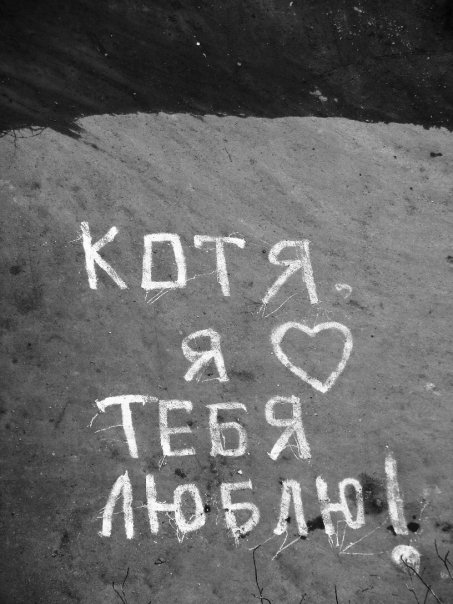 КОТЯ,
Я ♡
ТЕБЯ
ЛЮБЛЮ!